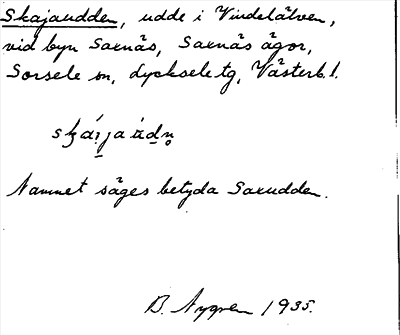 Skajaudden, udde i Vindelälven,
vid byn Saxnäs, Saxnäs ägor,
Sorsele sn, Lycksele tg, Västerb. l.
Namnet säges betyda Saxudden.
B. Nygren 1935.